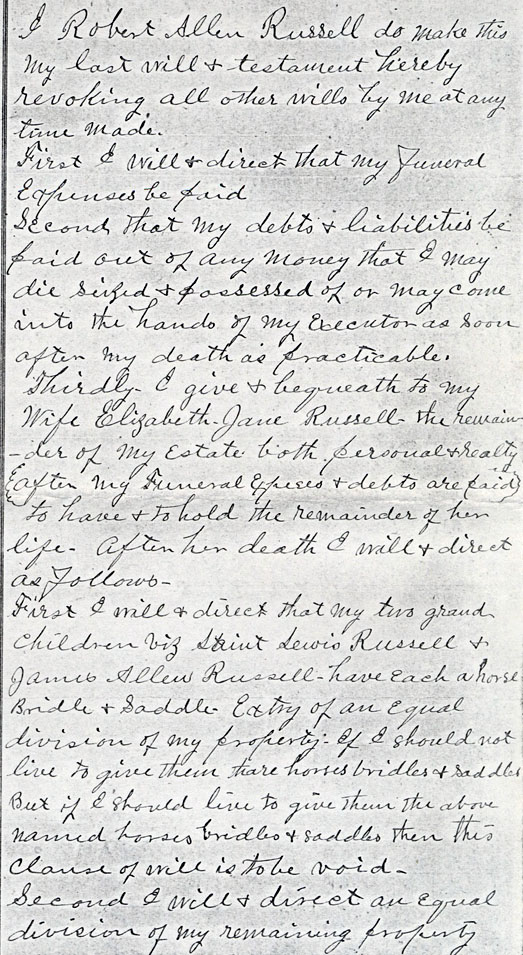 I Robert Allen Russell do make this
my last will & testament hereby
revoking all other wills by me at any
time made.
First I will & direct that my Funeral
Expenses be paid
Second that my debts & liabilities be
paid out of any money that I may
die seized & possessed of or may come
into the hands of my Executor as soon
after my death as practicable.
Thirdly I give & bequeath to my
Wife Elizabeth Jane Russell the remain
-der of my Estate both personal & realty
(after my Funeral Expeses & debts are paid)
to have & to hold the remainder of her
life - After her death I will & direct
as Follows -
First I will & direct that my two grand
Children viz Saint Lewis Russell &
James Allen Russell - have Each a horse
Bridle & Saddle Extry of an Equal
division of my property - If I should not
live to give them thare horses bridles & saddles
But if I should live to give them the above
named horses bridles & saddles then this
Clause of will is to be void -
Second I will & direct an Equal
division of my remaining property